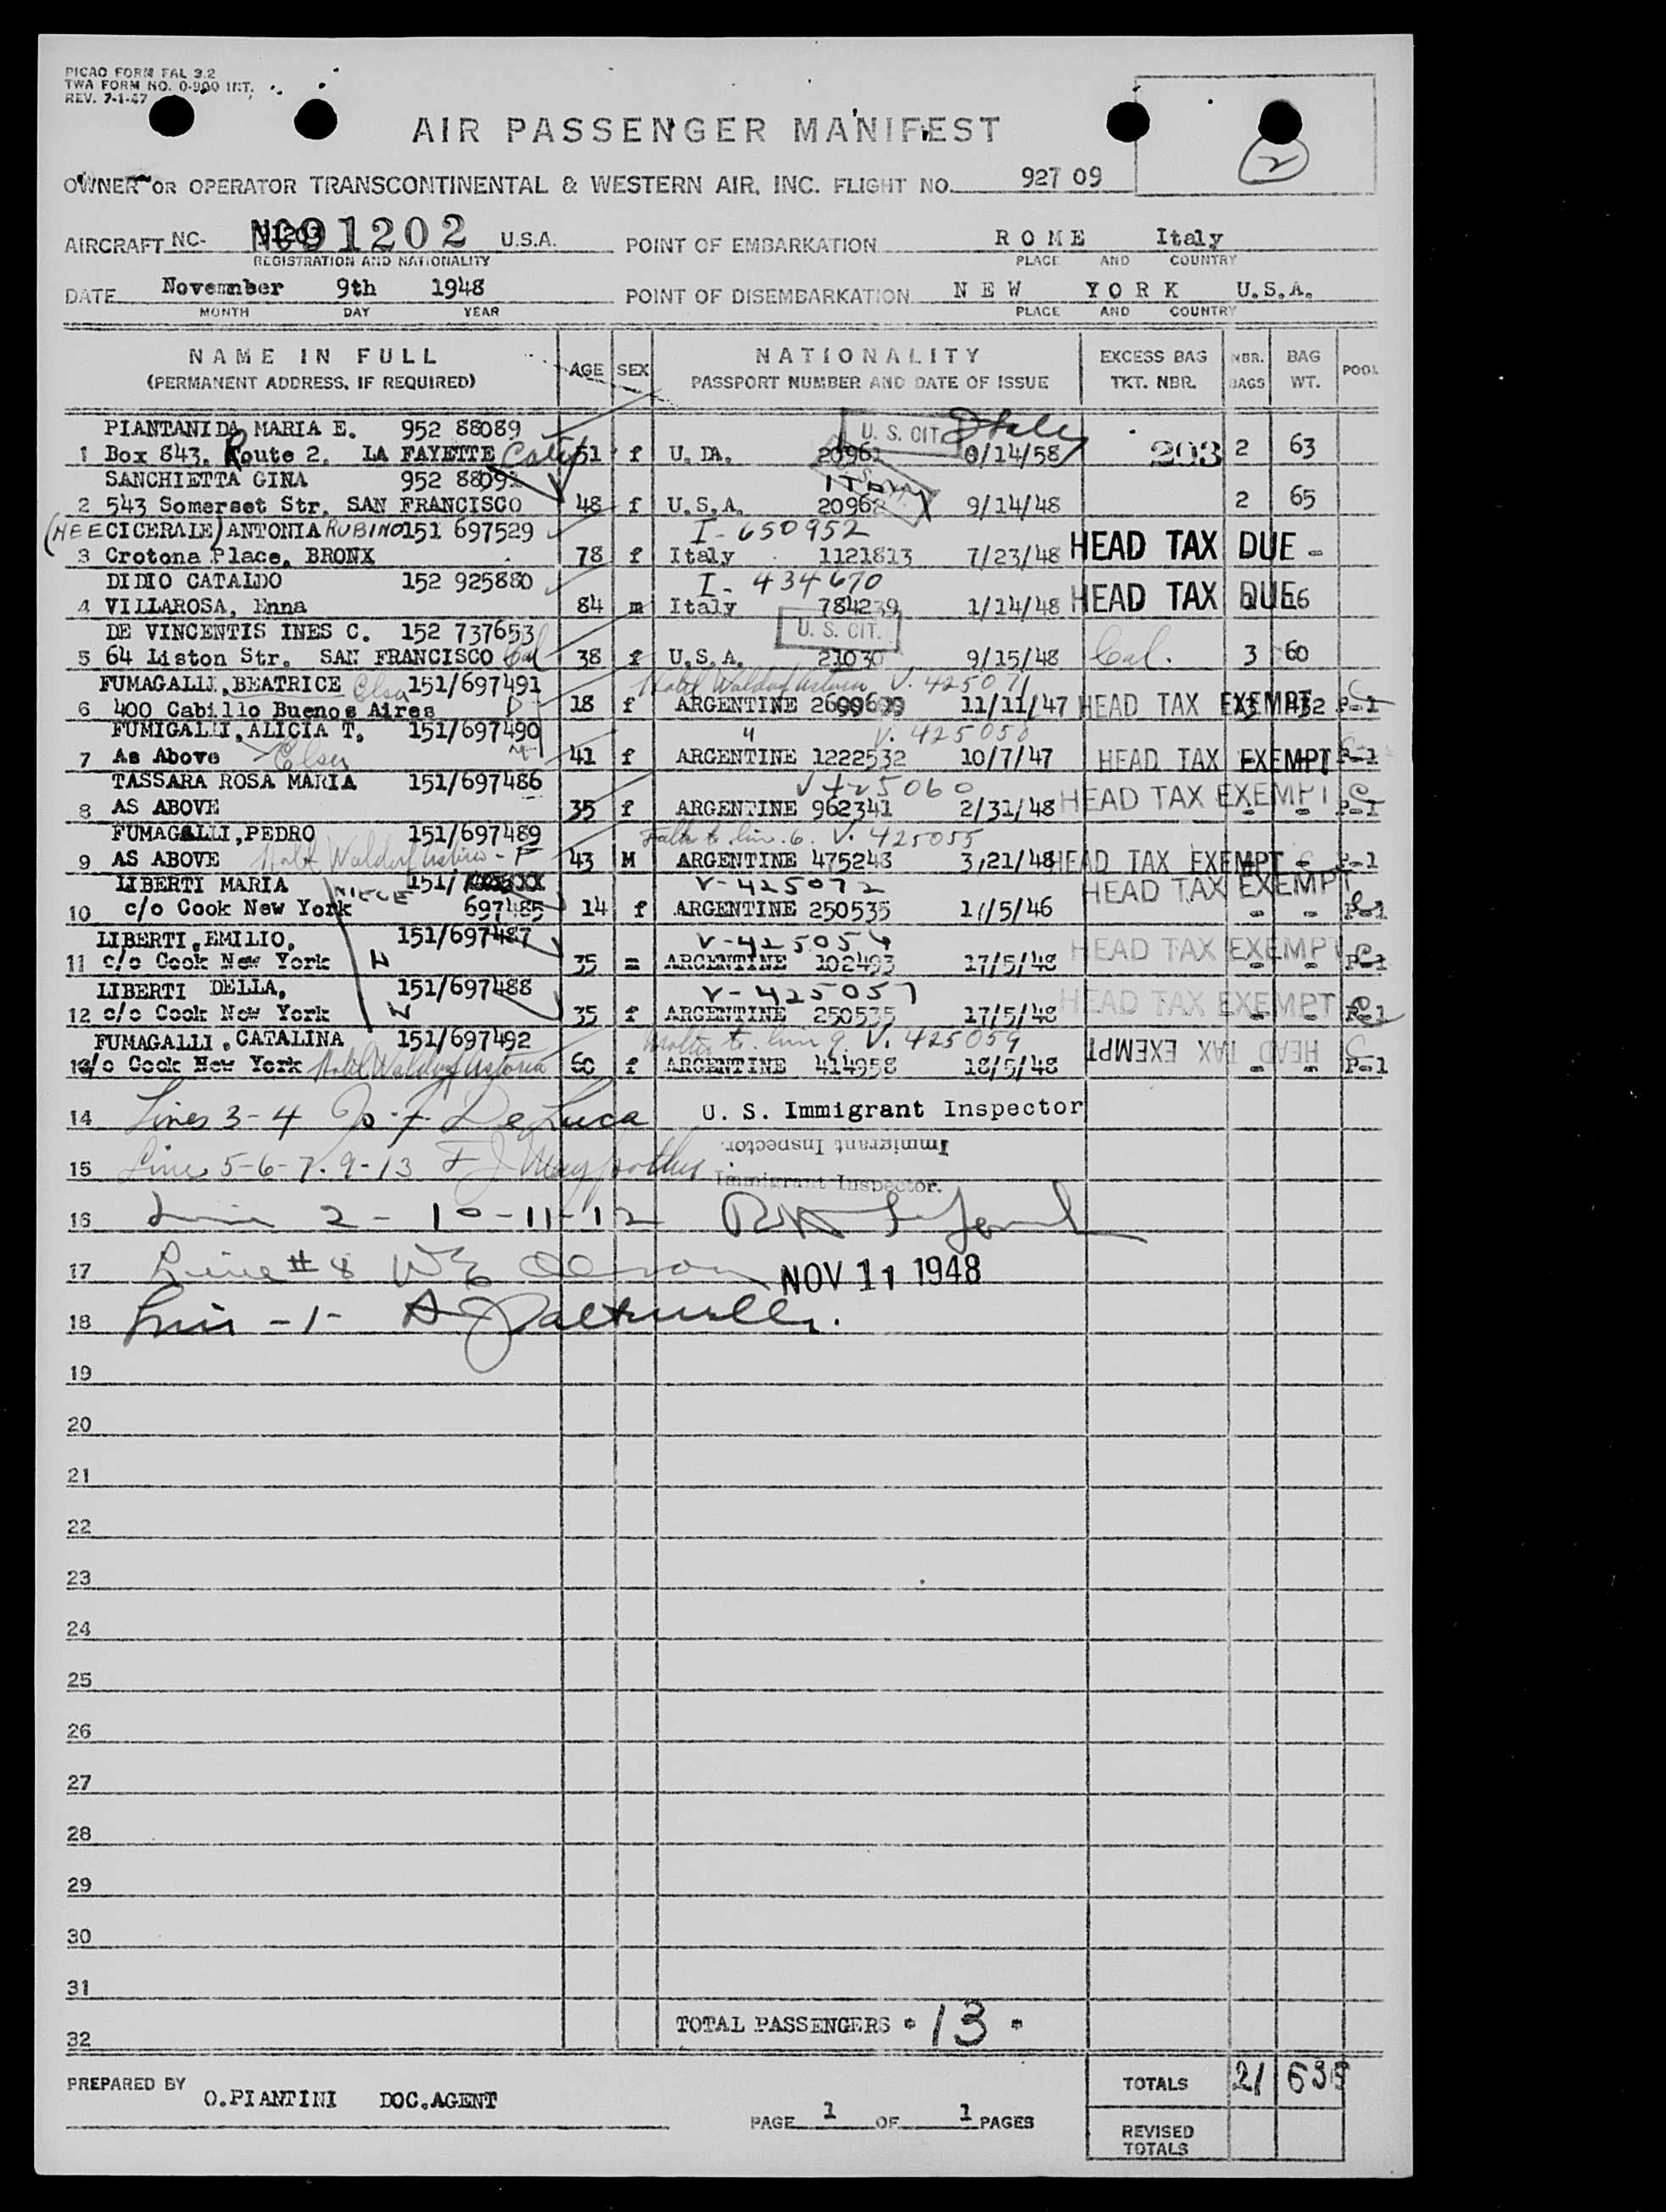 PICAO FORM FAL 3.2
TWA FORM NO. 0-900 INT.
REV. 7-1-47
AIR PASSENGER MANIFEST
2
OWNER OR OPERATOR TRANSCONTINENTAL & WESTERN AIR, INC. FLIGHT NO. 927 09
AIRCRAFT NC- 91202 U.S.A. POINT OF EMBARKATION ROME Italy
REGISTRATION AND NATIONALITY PLACE AND COUNTRY
DATE Novemnber 9th 1948 POINT OF DISEMBARKATION NEW YORK U.S.A.
MONTH DAY YEAR PLACE AND COUNTRY
NAME IN FULL AGE SEX NATIONALITY EXCESS BAG NBR. BAG POOL
(PERMANENT ADDRESS, IF REQUIRED) PASSPORT NUMBER AND DATE OF ISSUE TKT. NBR. BAGS WT.
PIANTANIDA MARIA E. 952 88089 U. S. CIT. Italy
1 Box 843, Route 2, LA FAYETTE Calif 51 f U.DA. 20961 0/14/58 203 2 63
SANCHIETTA GINA 952 8809 Italy
2 543 Somerset Str. SAN FRANCISCO 48 f U.S.A. 20962 9/14/48 2 65
(NEE CICERALE) ANTONIA RUBINO 151 697529 I-650952
3 Crotona Place, BRONX 78 f Italy 1121813 7/23/48 HEAD TAX DUE -
DI DIO CATALDO 152 925880 I-434670
4 VILLAROSA, Enna 84 m Italy 784239 1/14/48 HEAD TAX DUE
DE VINCENTIS INES C. 152 737653 U. S. CIT.
5 64 Liston Str. SAN FRANCISCO Cal 38 f U.S.A. 21030 9/15/48 Cal. 3 60
FUMAGALLI, BEATRICE Elsa 151/697491 Hotel Waldorf Astoria V. 425071
6 400 Cabillo Buenos Aires D- 18 f ARGENTINE 11/11/47 HEAD TAX EXEMPT P-1
FUMIGALLI, ALICIA T. 151/697490 " V. 425058
7 As Above Elsa 41 f ARGENTINE 1222532 10/7/47 HEAD TAX EXEMPT P-1
TASSARA ROSA MARIA 151/697486 V 425060
8 AS ABOVE 35 f ARGENTINE 962341 2/31/48 HEAD TAX EXEMPT - - P-1
FUMAGALLI, PEDRO 151/697489 Falls to line 6. V. 425055
9 AS ABOVE Hotel Waldorf Astoria - F 43 M ARGENTINE 475248 3,21/48 HEAD TAX EXEMPT - P-1
LIBERTI MARIA NIECE 151/ V-425072
10 c/o Cook New York 697485 14 f ARGENTINE 250535 17/5/46 HEAD TAX EXEMPT - - P-1
LIBERTI, EMILIO, 151/697487 V-425054
11 c/o Cook New York H 35 m ARGENTINE 102493 17/5/48 HEAD TAX EXEMPT - - P-1
LIBERTI DELLA, 151/697488 V-425057
12 c/o Cook New York W 35 f ARGENTINE 250535 17/5/48 HEAD TAX EXEMPT - - P-1
FUMAGALLI, CATALINA 151/697492 Mother to line 9 V. 425059
13 c/o Cook New York Hotel Waldorf Astoria 60 f ARGENTINE 414958 18/5/48 HEAD TAX EXEMPT - - P-1
14 Lines 3-4 Jo. F. De Luca U. S. Immigrant Inspector
Immigrant Inspector.
15 Lines 5-6-7-9-13 F J
Immigrant Inspector.
16 Line 2-10-11-12
17 Line # 8 NOV 11 1948
18 Line -1-
19
20
21
22
23
24
25
26
27
28
29
30
31
32 TOTAL PASSENGERS = 13 =
PREPARED BY O.PIANTINI DOC.AGENT TOTALS 21
PAGE 1 OF 1 PAGES
REVISED TOTALS